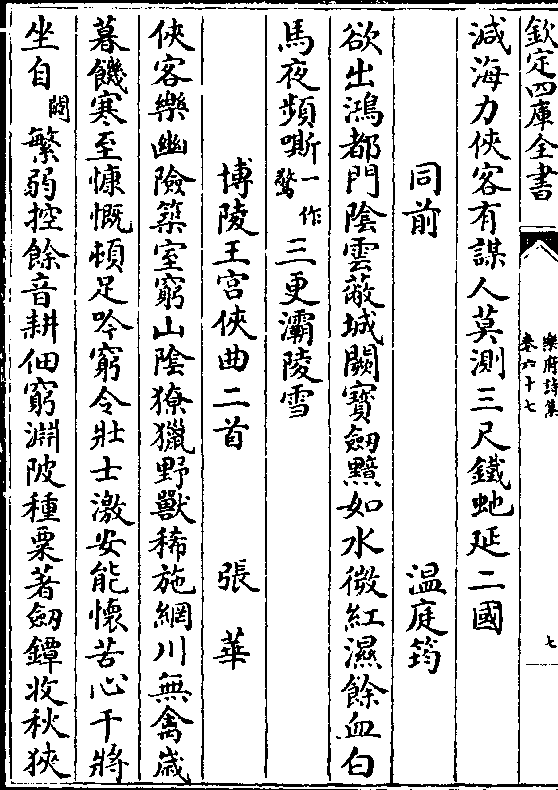 欽定四庫全書
樂府詩集
卷六十七
七
減海力俠客有謀人莫測三尺鐵虵延二國
同前 温庭筠
欲出鴻都門陰雲蔽城闕寳劔黯如水微紅濕餘血白
馬夜頻嘶一作驚三更灞陵雪
博陵王宫俠曲二首 張華
俠客樂幽險築室窮山陰獠獵野獸稀施網川無禽歳
暮饑寒至慷慨頓足吟窮令壯士激安能懐苦心干將
坐自闕繁弱控餘音耕佃窮淵陂種粟著劔鐔收秋狹